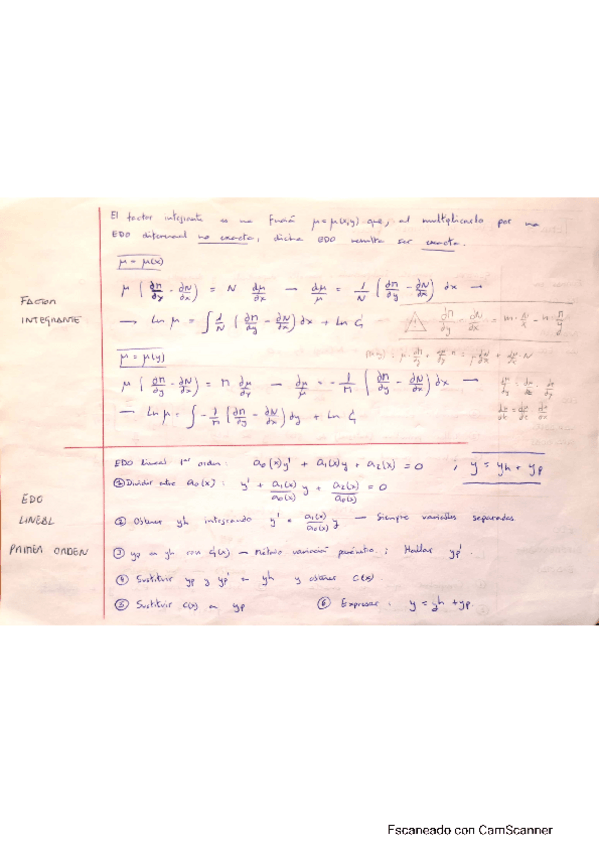 El factor integrante es una función μ=μ(x,y) que, al multiplicarlo por una
EDO diferencial no exacta, dicha EDO resulta ser exacta.
μ = μ(x)
μ (∂M/∂y - ∂N/∂x) = N dμ/dx → dμ/μ = 1/N (∂M/∂y - ∂N/∂x) dx →
FACTOR
INTEGRANTE
→ Ln μ = ∫ 1/N (∂M/∂y - ∂N/∂x) dx + Ln C₁
∂M/∂y - ∂N/∂x =
μ = μ(y)
μ (∂M/∂y - ∂N/∂x) = M dμ/dy → dμ/μ = - 1/M (∂M/∂y - ∂N/∂x) dx →
→ Ln μ = ∫ - 1/M (∂M/∂y - ∂N/∂x) dy + Ln C₁
EDO lineal 1er orden: a₀(x)y' + a₁(x)y + a₂(x) = 0 ; y = yh + yp
① Dividir entre a₀(x): y' + a₁(x)/a₀(x) y + a₂(x)/a₀(x) = 0
EDO
LINEAL
PRIMER ORDEN
② Obtener yh integrando y' + a₁(x)/a₀(x) y — Siempre variables separadas
③ yp en yh con C₁(x) — Método variación parámetro ; Hallar yp'.
④ Sustituir yp y yp' en yh y obtener C(x).
⑤ Sustituir C(x) en yp ⑥ Expresar: y = yh + yp.
Escaneado con CamScanner